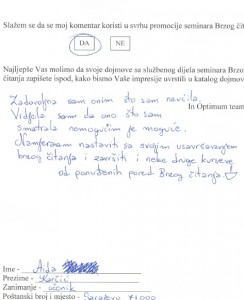 Slažem se da se moj komentar koristi u svrhu promocije seminara Brzog čit
DA NE
Najljepše Vas molimo da svoje dojmove sa službenog dijela seminara Brzo
čitanja zapišete ispod, kako bismo Vaše impresije uvrstili u katalog dojmov
In Optimum team
Zadovoljna sam onim što sam naučila.
Vidjela sam da ono što sam
smatrala nemogućim je moguće.
Namjeravam nastaviti sa svojim usavršavanjem
brzog čitanja i završiti i neke druge kurseve
od ponuđenih pored Brzog čitanja.
Ime - Aida
Prezime - Karčić
Zanimanje - učenik
Poštanski broj i mjesto - Sarajevo 71000